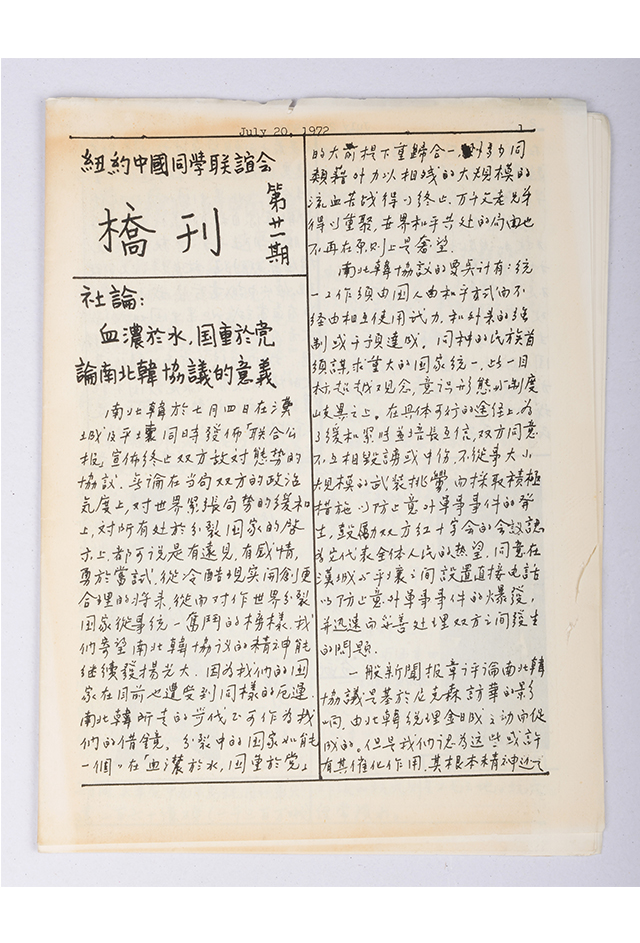 July 20, 1972
1
紐約中國同學联誼会
橋刊
第廿一期
社論:
血濃於水,国重於党
論南北韓協議的意義
南北韓於七月四日在漢
城及平壤同時發佈「联合公
报」宣佈終止双方敌对態势的
協议.無論在当局双方的政治
气度上,对世界緊張局势的緩和
上,对所有处於分裂国家的啓
示上,都可说是有遠見,有感情,
勇於嘗試,從冷酷現实间創更
合理的将来,從而对作世界分裂
国家從事统一奮鬥的榜樣.我
们希望南北韓協议的精神能
继续發揚光大.因為我们的国
家在目前也遭受到同樣的厄運.
南北韓所走的步伐正可作為我
们的借鏡.分裂中的国家如能
一個個在「血濃於水,国重於党」
的大前提下重歸合一,
類藉外力以相残的大規模的
流血苦战得以终止.万千父老兄弟
得以重聚,世界和平共处的局面也
不再在原则上是奢望.
南北韓協议的要点计有:统
一工作須由国人由和平方式而不
经由相互使用武力,和外来的強
制或干預達成.同种的民族首
須謀求重大的国家统一,此一目
标超越观念,意识形態和制度
歧異之上.在具体可行的途径上,为
了緩和緊張並培長互信,双方同意
不互相毀謗或中伤,不從事大小
規模的武装挑釁而採取積極
措施以防止意外軍事事件的發
生,鼓勵双方红十字会的会談認
为它代表全体人民的热望,同意在
漢城和平壤之间設置直接电話
以防止意外軍事事件的爆發,
並迅速而妥善处理双方之间發生
的問題.
一般新聞报章评论南北韓
協議是基於尼克森訪華的影
响,由北韓総理金日成主动而促
成的.但是我们認为这些或許
有其催化作用,其根本精神还是